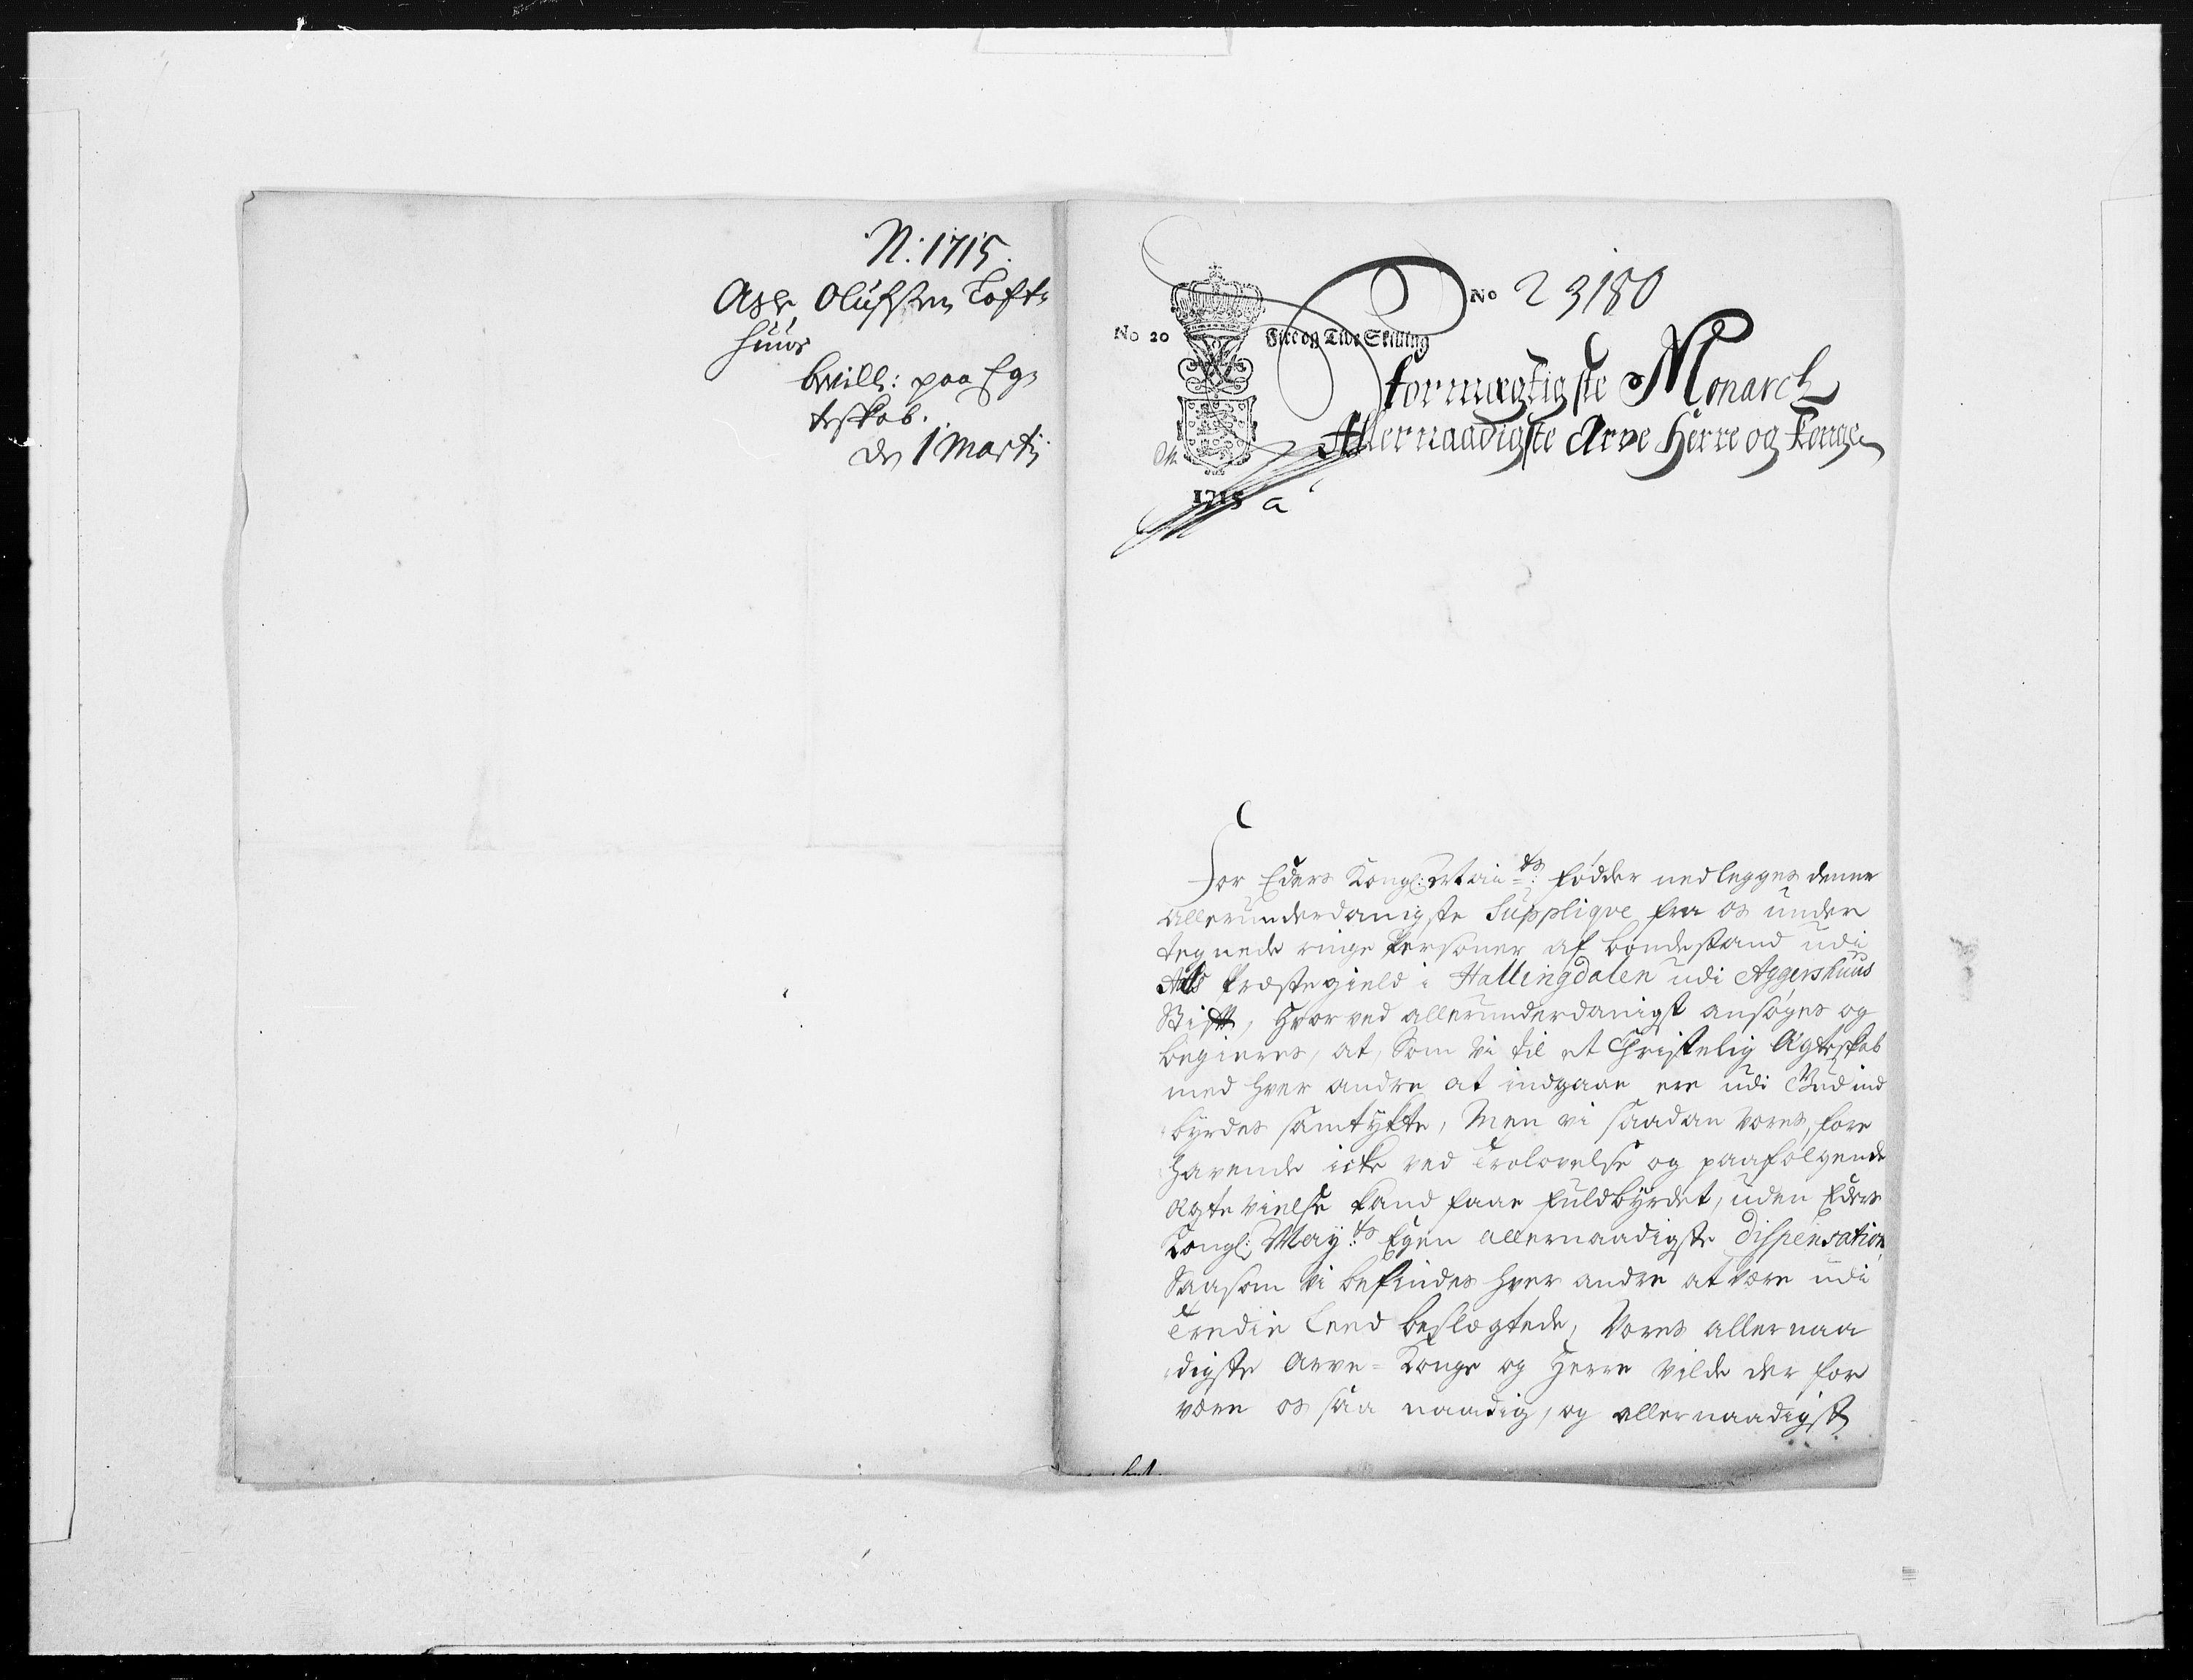 N: 1715.
Asle Olufsen Toft-
huus
bevill: paa Eg-
teskab.
den 1 Martij
No 23180
No 20
Fire og Tive Skilling
Stormægtigste Monarch
Allernaadigste Arve Herre og Konge
1715
a
For Eders Kongl: Maits: fødder nedlegges denne
allerunderdanigste Supplique fra os under
tegnede ringe Personer af bondestand udi
Aals Præstegield i Hallingdalen udi Aggershuus
Stift, Hvorved allerunderdanigst ansøges og
begieres, at, som vi til et Christelig Ægteskab
med hver andre at indgaae ere udi
byrdes samtykte, Men vi saadan vores fore
havende icke ved Trolovelse og paafølgende
Ægte vielse kand faae fuldbyrdet, uden Eders
Kongl: Mayts: Egen allernaadigste dispensation,
Saasom vi befindes hver andre at være udi
Tredie Leed beslægtede, Vores allernaa
digste Arve-Konge og Herre vilde der for
være os saa naadig, og allernaadigst